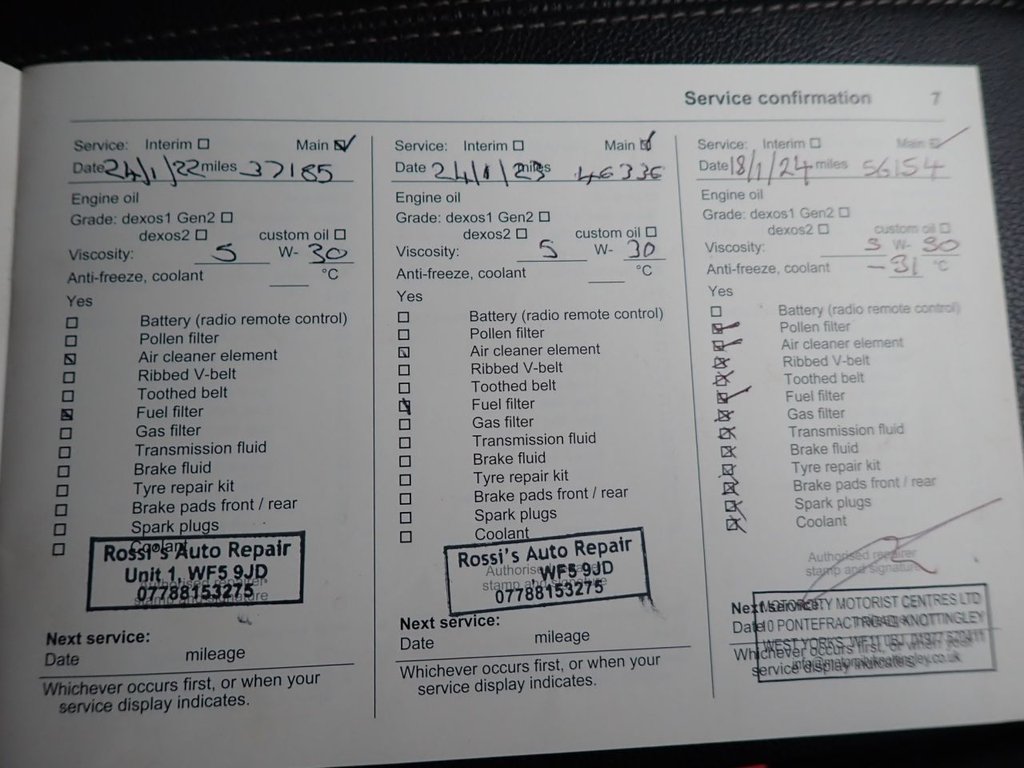 Service confirmation 7
Service: Interim Main
Date 24/1/22 miles 37185
Engine oil
Grade: dexos1 Gen2
dexos2 custom oil
Viscosity: 5 W- 30
Anti-freeze, coolant °C
Yes
Battery (radio remote control)
Pollen filter
Air cleaner element
Ribbed V-belt
Toothed belt
Fuel filter
Gas filter
Transmission fluid
Brake fluid
Tyre repair kit
Brake pads front / rear
Spark plugs
Coolant
Rossi's Auto Repair
Unit 1, WF5 9JD
Authorised repairer
07788153275
stamp and signature
Next service:
Date mileage
Whichever occurs first, or when your
service display indicates.
Service: Interim Main
Date 24/1/23 miles 46336
Engine oil
Grade: dexos1 Gen2
dexos2 custom oil
Viscosity: 5 W- 30
Anti-freeze, coolant °C
Yes
Battery (radio remote control)
Pollen filter
Air cleaner element
Ribbed V-belt
Toothed belt
Fuel filter
Gas filter
Transmission fluid
Brake fluid
Tyre repair kit
Brake pads front / rear
Spark plugs
Coolant
Rossi's Auto Repair
Authorised
WF5 9JD
stamp and signature
07788153275
Next service:
Date mileage
Whichever occurs first, or when your
service display indicates.
Service: Interim Main
Date 18/1/24 miles 56154
Engine oil
Grade: dexos1 Gen2
dexos2 custom oil
Viscosity: 5 W- 30
Anti-freeze, coolant -31 °C
Yes
Battery (radio remote control)
Pollen filter
Air cleaner element
Ribbed V-belt
Toothed belt
Fuel filter
Gas filter
Transmission fluid
Brake fluid
Tyre repair kit
Brake pads front / rear
Spark plugs
Coolant
Authorised repairer
stamp and signature
Next service:
MOTORCITY MOTORIST CENTRES LTD
Date
10 PONTEFRACT ROAD, KNOTTINGLEY
WEST YORKS, WF11
Whichever occurs first, or when your
service display indicates.